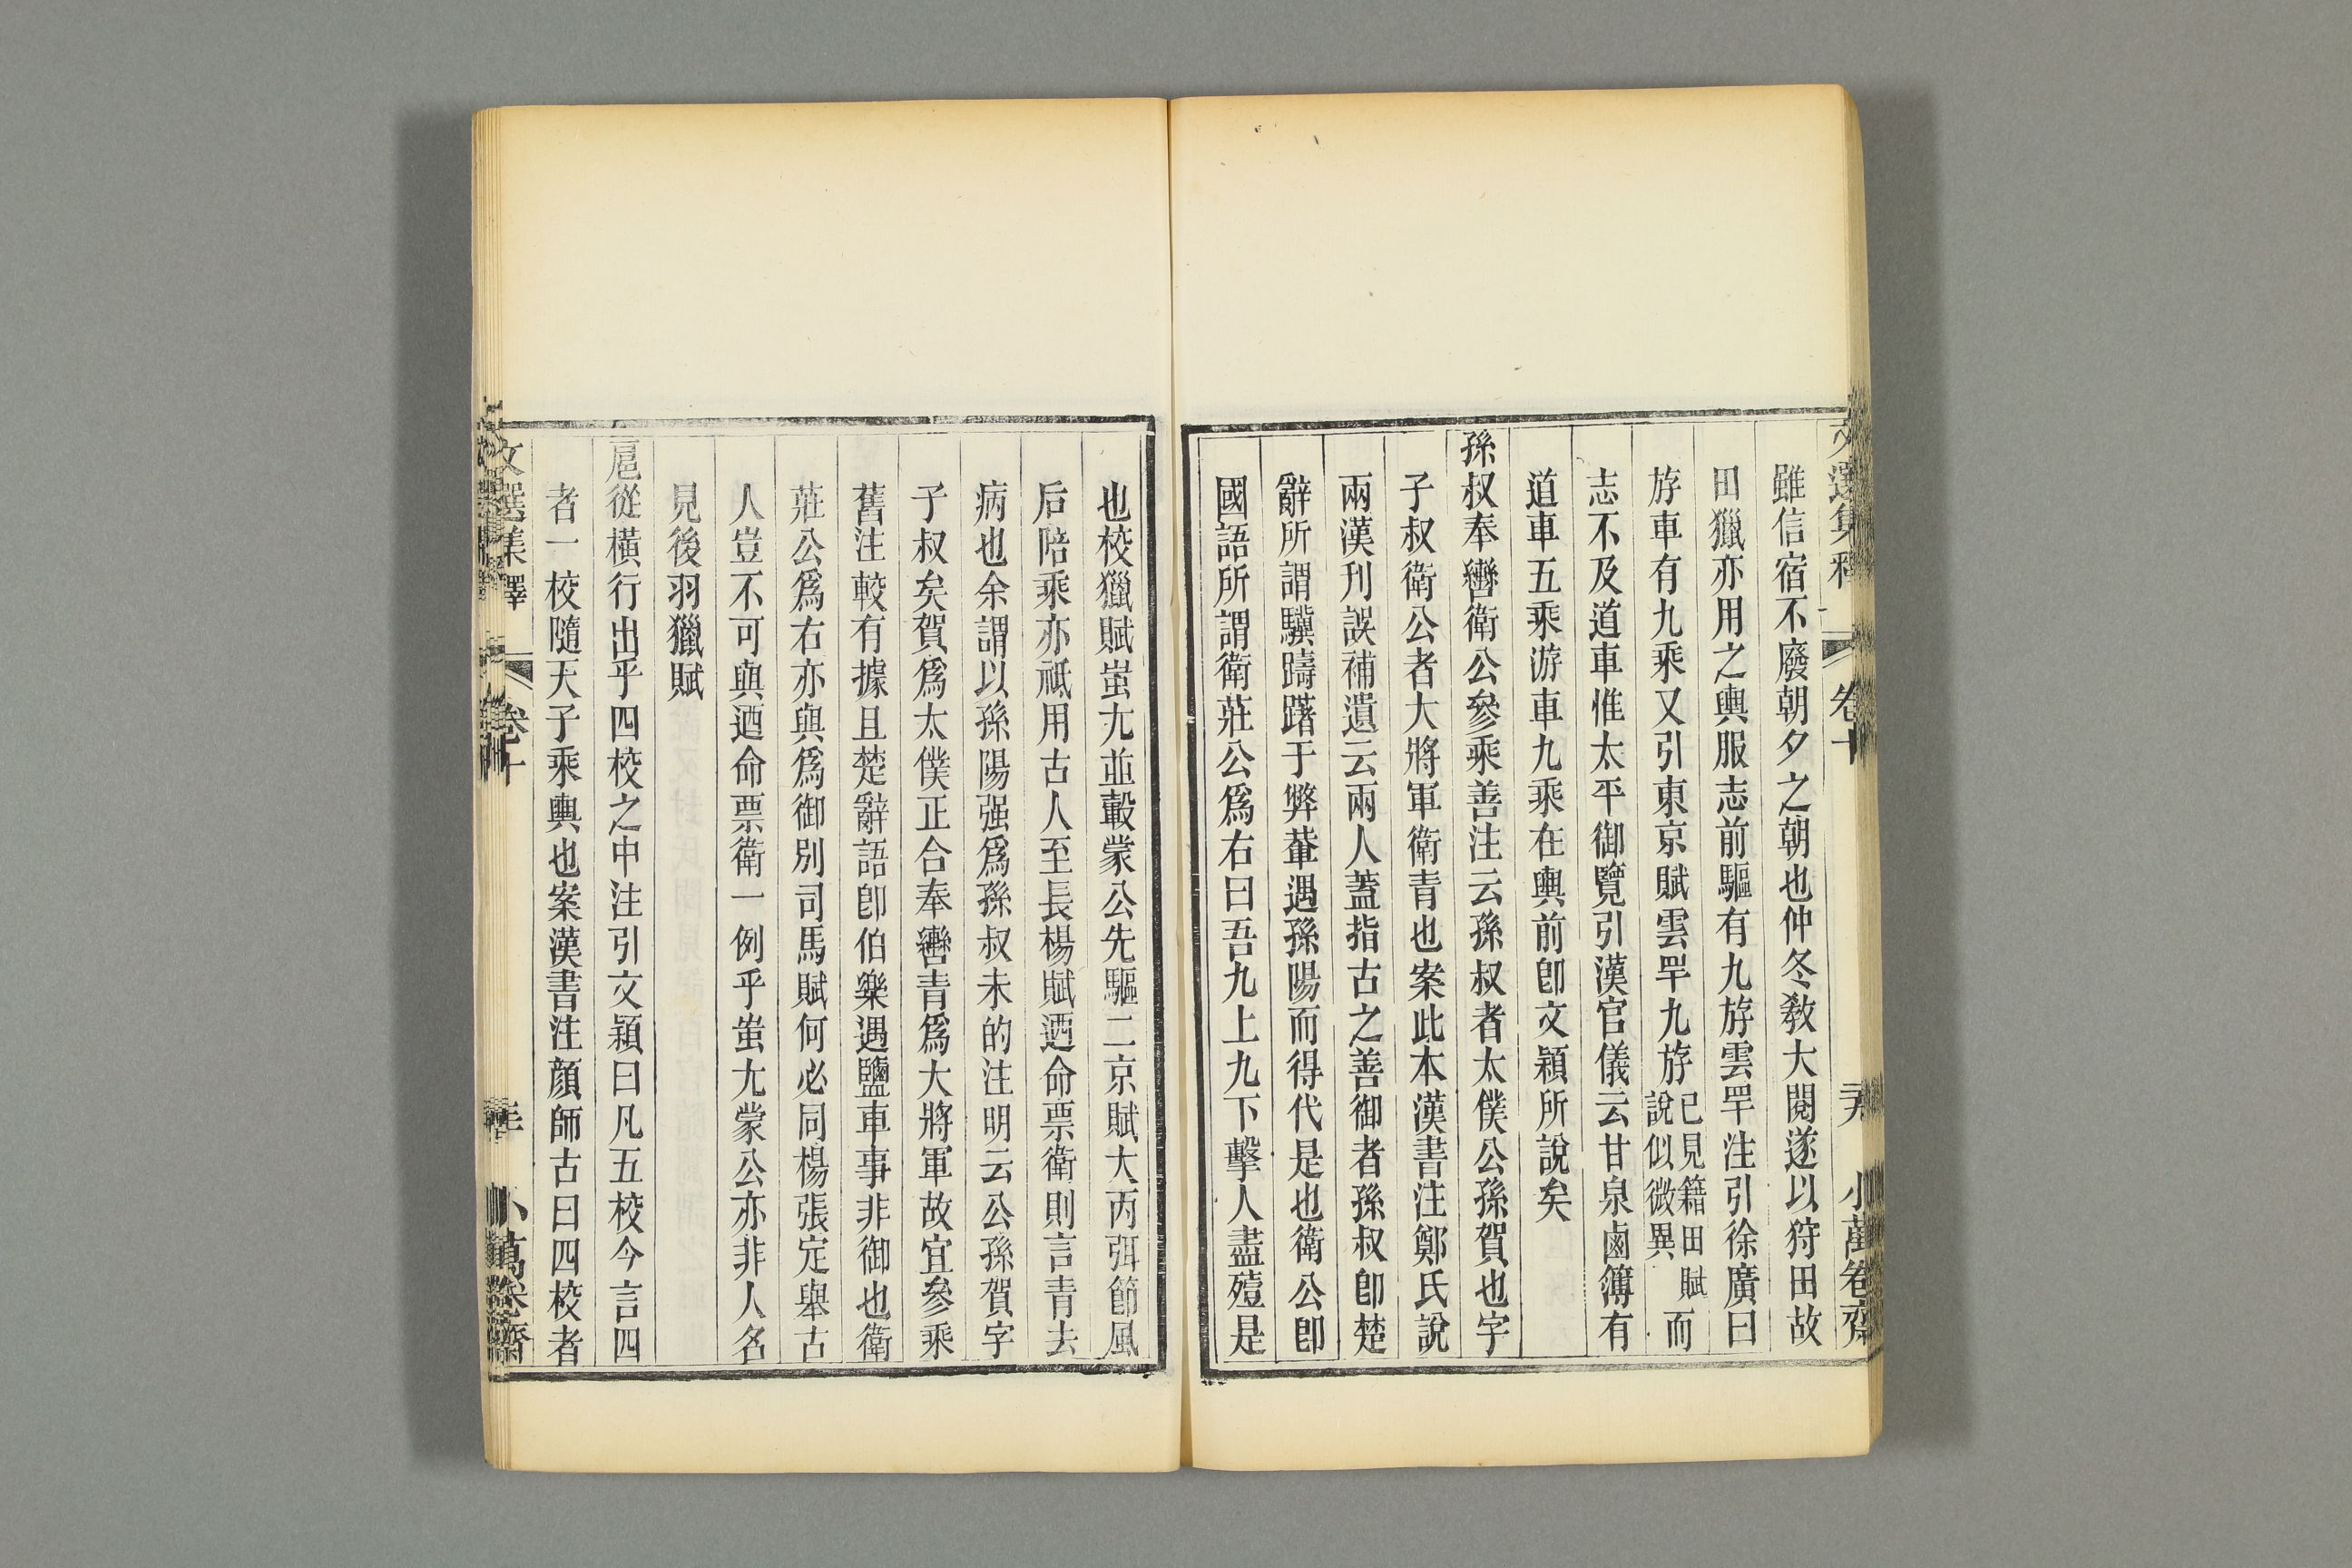 文選集釋 卷十 小萬卷齋
雖信宿不廢朝夕之朝也仲冬敎大閱遂以狩田故
田獵亦用之輿服志前驅有九斿雲䍐注引徐廣曰
斿車有九乘又引東京賦雲䍐九斿已見籍田賦說似微異而
志不及道車惟太平御覽引漢官儀云甘泉鹵簿有
道車五乘游車九乘在輿前卽文穎所說矣
孫叔奉轡衛公參乘善注云孫叔者太僕公孫賀也字
子叔衛公者大將軍衛青也案此本漢書注鄭氏說
兩漢刊誤補遺云兩人蓋指古之善御者孫叔卽楚
辭所謂驥躊躇于弊輂遇孫陽而得代是也衛公卽
國語所謂衛莊公爲右曰吾九上九下擊人盡殪是
也校獵賦蚩尤並轂蒙公先驅二京賦大丙弭節風
后陪乘亦祇用古人至長楊賦迺命票衛則言青去
病也余謂以孫陽强爲孫叔未的注明云公孫賀字
子叔矣賀爲太僕正合奉轡青爲大將軍故宜參乘
舊注較有據且楚辭語卽伯樂遇鹽車事非御也衛
莊公爲右亦與爲御別司馬賦何必同楊張定舉古
人豈不可與迺命票衛一例乎蚩尤蒙公亦非人名
見後羽獵賦
扈從橫行出乎四校之中注引文穎曰凡五校今言四
者一校隨天子乘輿也案漢書注顏師古曰四校者
文選集釋 卷十 小萬卷齋